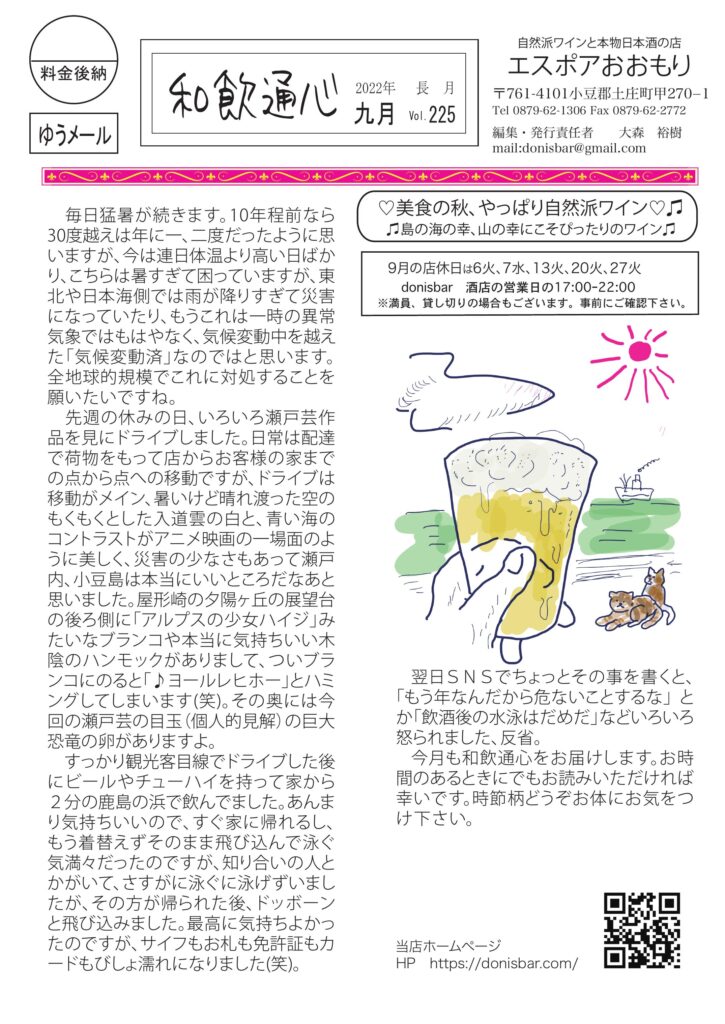 料金後納
ゆうメール
和飲通心
2022年 長 月
九月 Vol.225
自然派ワインと本物日本酒の店
エスポアおおもり
〒761-4101小豆郡土庄町甲270−1
Tel 0879-62-1306 Fax 0879-62-2772
編集・発行責任者 大森 裕樹
mail:donisbar@gmail.com
♡美食の秋、やっぱり自然派ワイン♡♫
♫島の海の幸、山の幸にこそぴったりのワイン♫
9月の店休日は6火、7水、13火、20火、27火
donisbar 酒店の営業日の17:00-22:00
※満員、貸し切りの場合もございます。事前にご確認下さい。
毎日猛暑が続きます。10年程前なら
30度越えは年に一、二度だったように思
いますが、今は連日体温より高い日ばか
り、こちらは暑すぎて困っていますが、東
北や日本海側では雨が降りすぎて災害
になっていたり、もうこれは一時の異常
気象ではもはやなく、気候変動中を越え
た「気候変動済」なのではと思います。
全地球的規模でこれに対処することを
願いたいですね。
先週の休みの日、いろいろ瀬戸芸作
品を見にドライブしました。日常は配達
で荷物をもって店からお客様の家まで
の点から点への移動ですが、ドライブは
移動がメイン、暑いけど晴れ渡った空の
もくもくとした入道雲の白と、青い海の
コントラストがアニメ映画の一場面のよ
うに美しく、災害の少なさもあって瀬戸
内、小豆島は本当にいいところだなあと
思いました。屋形崎の夕陽ヶ丘の展望台
の後ろ側に「アルプスの少女ハイジ」み
たいなブランコや本当に気持ちいい木
陰のハンモックがありまして、ついブラ
ンコにのると「♪ヨールレヒホー」とハミ
ングしてしまいます(笑)。その奥には今
回の瀬戸芸の目玉(個人的見解)の巨大
恐竜の卵がありますよ。
すっかり観光客目線でドライブした後
にビールやチューハイを持って家から
２分の鹿島の浜で飲んでました。あんま
り気持ちいいので、すぐ家に帰れるし、
もう着替えずそのまま飛び込んで泳ぐ
気満々だったのですが、知り合いの人と
かがいて、さすがに泳ぐに泳げずいまし
たが、その方が帰られた後、ドッボーン
と飛び込みました。最高に気持ちよかっ
たのですが、サイフもお札も免許証もカ
ードもびしょ濡れになりました(笑)。
翌日ＳＮＳでちょっとその事を書くと、
「もう年なんだから危ないことするな」と
か「飲酒後の水泳はだめだ」などいろいろ
怒られました、反省。
今月も和飲通心をお届けします。お時
間のあるときにでもお読みいただければ
幸いです。時節柄どうぞお体にお気をつ
け下さい。
当店ホームページ
HP https://donisbar.com/